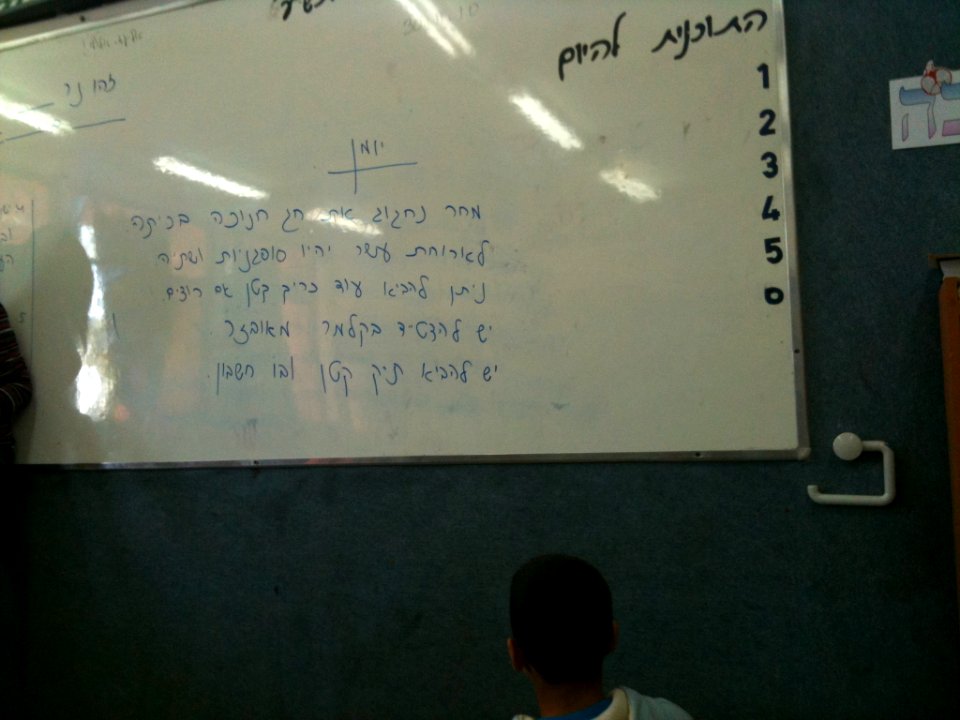 התוכנית להיום
1
2
3
4
5
יומן
מחר נחגוג את חג חנוכה בכיתה
לארוחת עשר יהיו סופגניות ושתיה.
ניתן להביא עוד כריך קטן אם רוצים.
יש להצטייד בקלמר מאובזר.
יש להביא תיק קטן ובו חשבון.
זהו נר